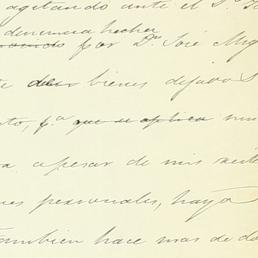 agitando ante el S.
denuncia hecha
por Dn. José Mig
bienes dejad
to, pa. que se aplica
a apesar de mis reite
es personales, haya
tambien hace mas de do